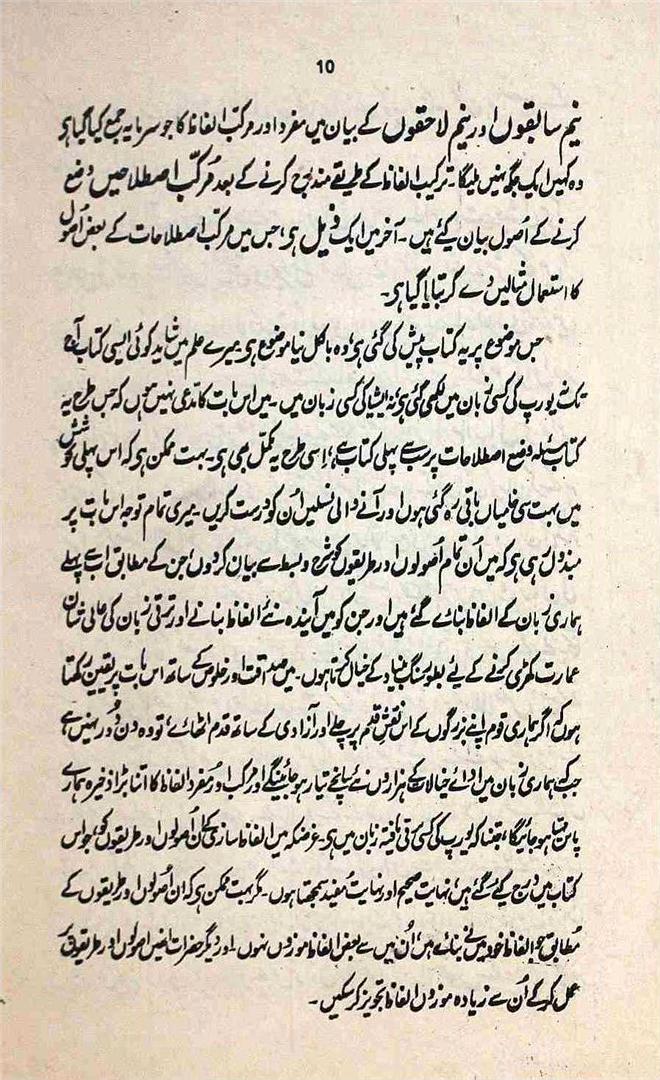 10
نیم سابقوں اور نیم لاحقوں کے بیان میں مفرد اور مرکب الفاظ کا جو سرمایہ جمع کیا گیا ہی
وہ کہیں ایک جگہ نہیں ملیگا۔ ترکیب الفاظ کے طریقے مندرج کرنے کے بعد مُرکّب اصطلاحیں وضع
کرنے کے اُصول بیان کیے ہیں۔ آخر میں ایک ذیل ہی، جس میں مرکب اصطلاحات کے بعض اُصول
کا استعمال مثالیں دے کر بتایا گیا ہی۔
جس موضوع پر یہ کتاب پیش کی گئی ہی، وہ بالکل نیا موضوع ہی میرے علم میں شاید کوئی ایسی کتاب آج
تک نہ یورپ کی کسی زبان میں لکھی گئی ہی، نہ ایشیا کی کسی زبان میں۔ میں اس بات کا مدعی نہیں ہوں کہ جس طرح یہ
کتاب مسئلہ وضع اصطلاحات پر سب سے پہلی کتاب ہے، اسی طرح یہ مکمل بھی ہی۔ بہت ممکن ہی کہ اس پہلی کوشش
میں بہت سی خامیاں باقی رہ گئی ہوں اور آنے والی نسلیں اُن کو درست کریں۔ میری تمام توجہ اس بات پر
مبذول رہی ہی کہ میں اُن تمام اُصولوں اور طریقوں کو شرح و بسط سے بیان کردوں، جن کے مطابق اب سے پہلے
ہماری زبان کے الفاظ بنائے گئے ہیں اور جن کو میں آیندہ نئے الفاظ بنانے اور ترقی زبان کی عالی شان
عمارت کھڑی کرنے کے لیے بطور سنگ بنیاد کے خیال کرتا ہوں۔ میں صداقت اور خلوص کے ساتھ اس بات پر یقین رکھتا
ہوں کہ اگر ہماری قوم اپنے بزرگوں کے اس نقش قدم پر چلے اور آزادی کے ساتھ قدم اٹھائے، تو وہ دن دُور نہیں ہے
جب کہ ہماری زبان میں ادائے خیالات کے ہزاروں نئے سانچے تیار ہو جائینگے اور مرکب اور مُفرد الفاظ کا اتنا بڑا ذخیرہ ہمارے
پاس مہیا ہو جائیگا، جتنا کہ یورپ کی کسی ترقی یافتہ زبان میں ہی۔ غرضکہ میں الفاظ سازی کے ان اُصولوں اور طریقوں کو، جو اس
کتاب میں درج کیے گئے ہیں، نہایت صحیح اور نہایت مُفید سمجھتا ہوں۔ مگر بہت ممکن ہی کہ ان اُصولوں اور طریقوں کے
مُطابق جو الفاظ خود میں نے بنائے ہیں، اُن میں سے بعض الفاظ موزوں نہوں۔ اور دیگر حضرات انہیں اصولوں اور طریقوں پر
عمل کر کے اُن سے زیادہ موزوں الفاظ تجویز کر سکیں۔